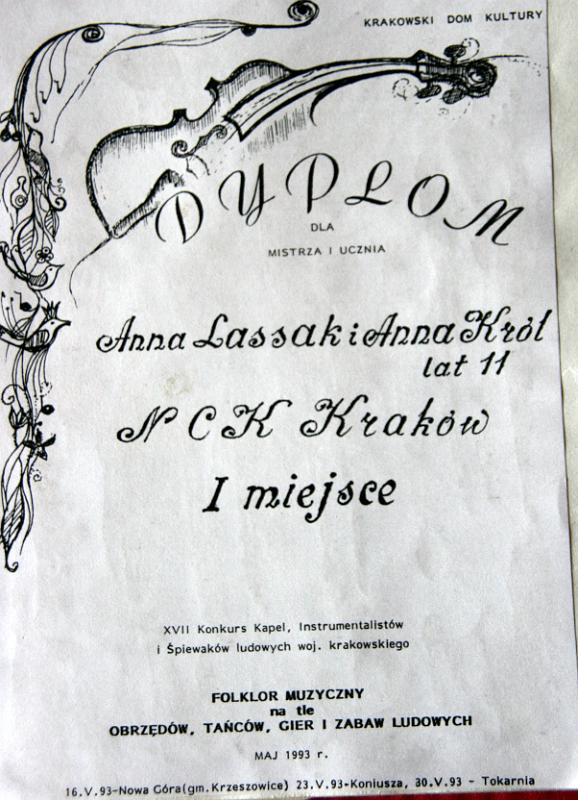 KRAKOWSKI DOM KULTURY
DYPLOM
DLA
MISTRZA I UCZNIA
Anna Lassak i Anna Król
lat 11
NCK Kraków
I miejsce
XVII Konkurs Kapel, Instrumentalistów
i Śpiewaków ludowych woj. krakowskiego
FOLKLOR MUZYCZNY
na tle
OBRZĘDÓW, TAŃCÓW, GIER I ZABAW LUDOWYCH
MAJ 1993 r.
16.V.93-Nowa Góra(gm. Krzeszowice) 23.V.93-Koniusza, 30.V.93 - Tokarnia